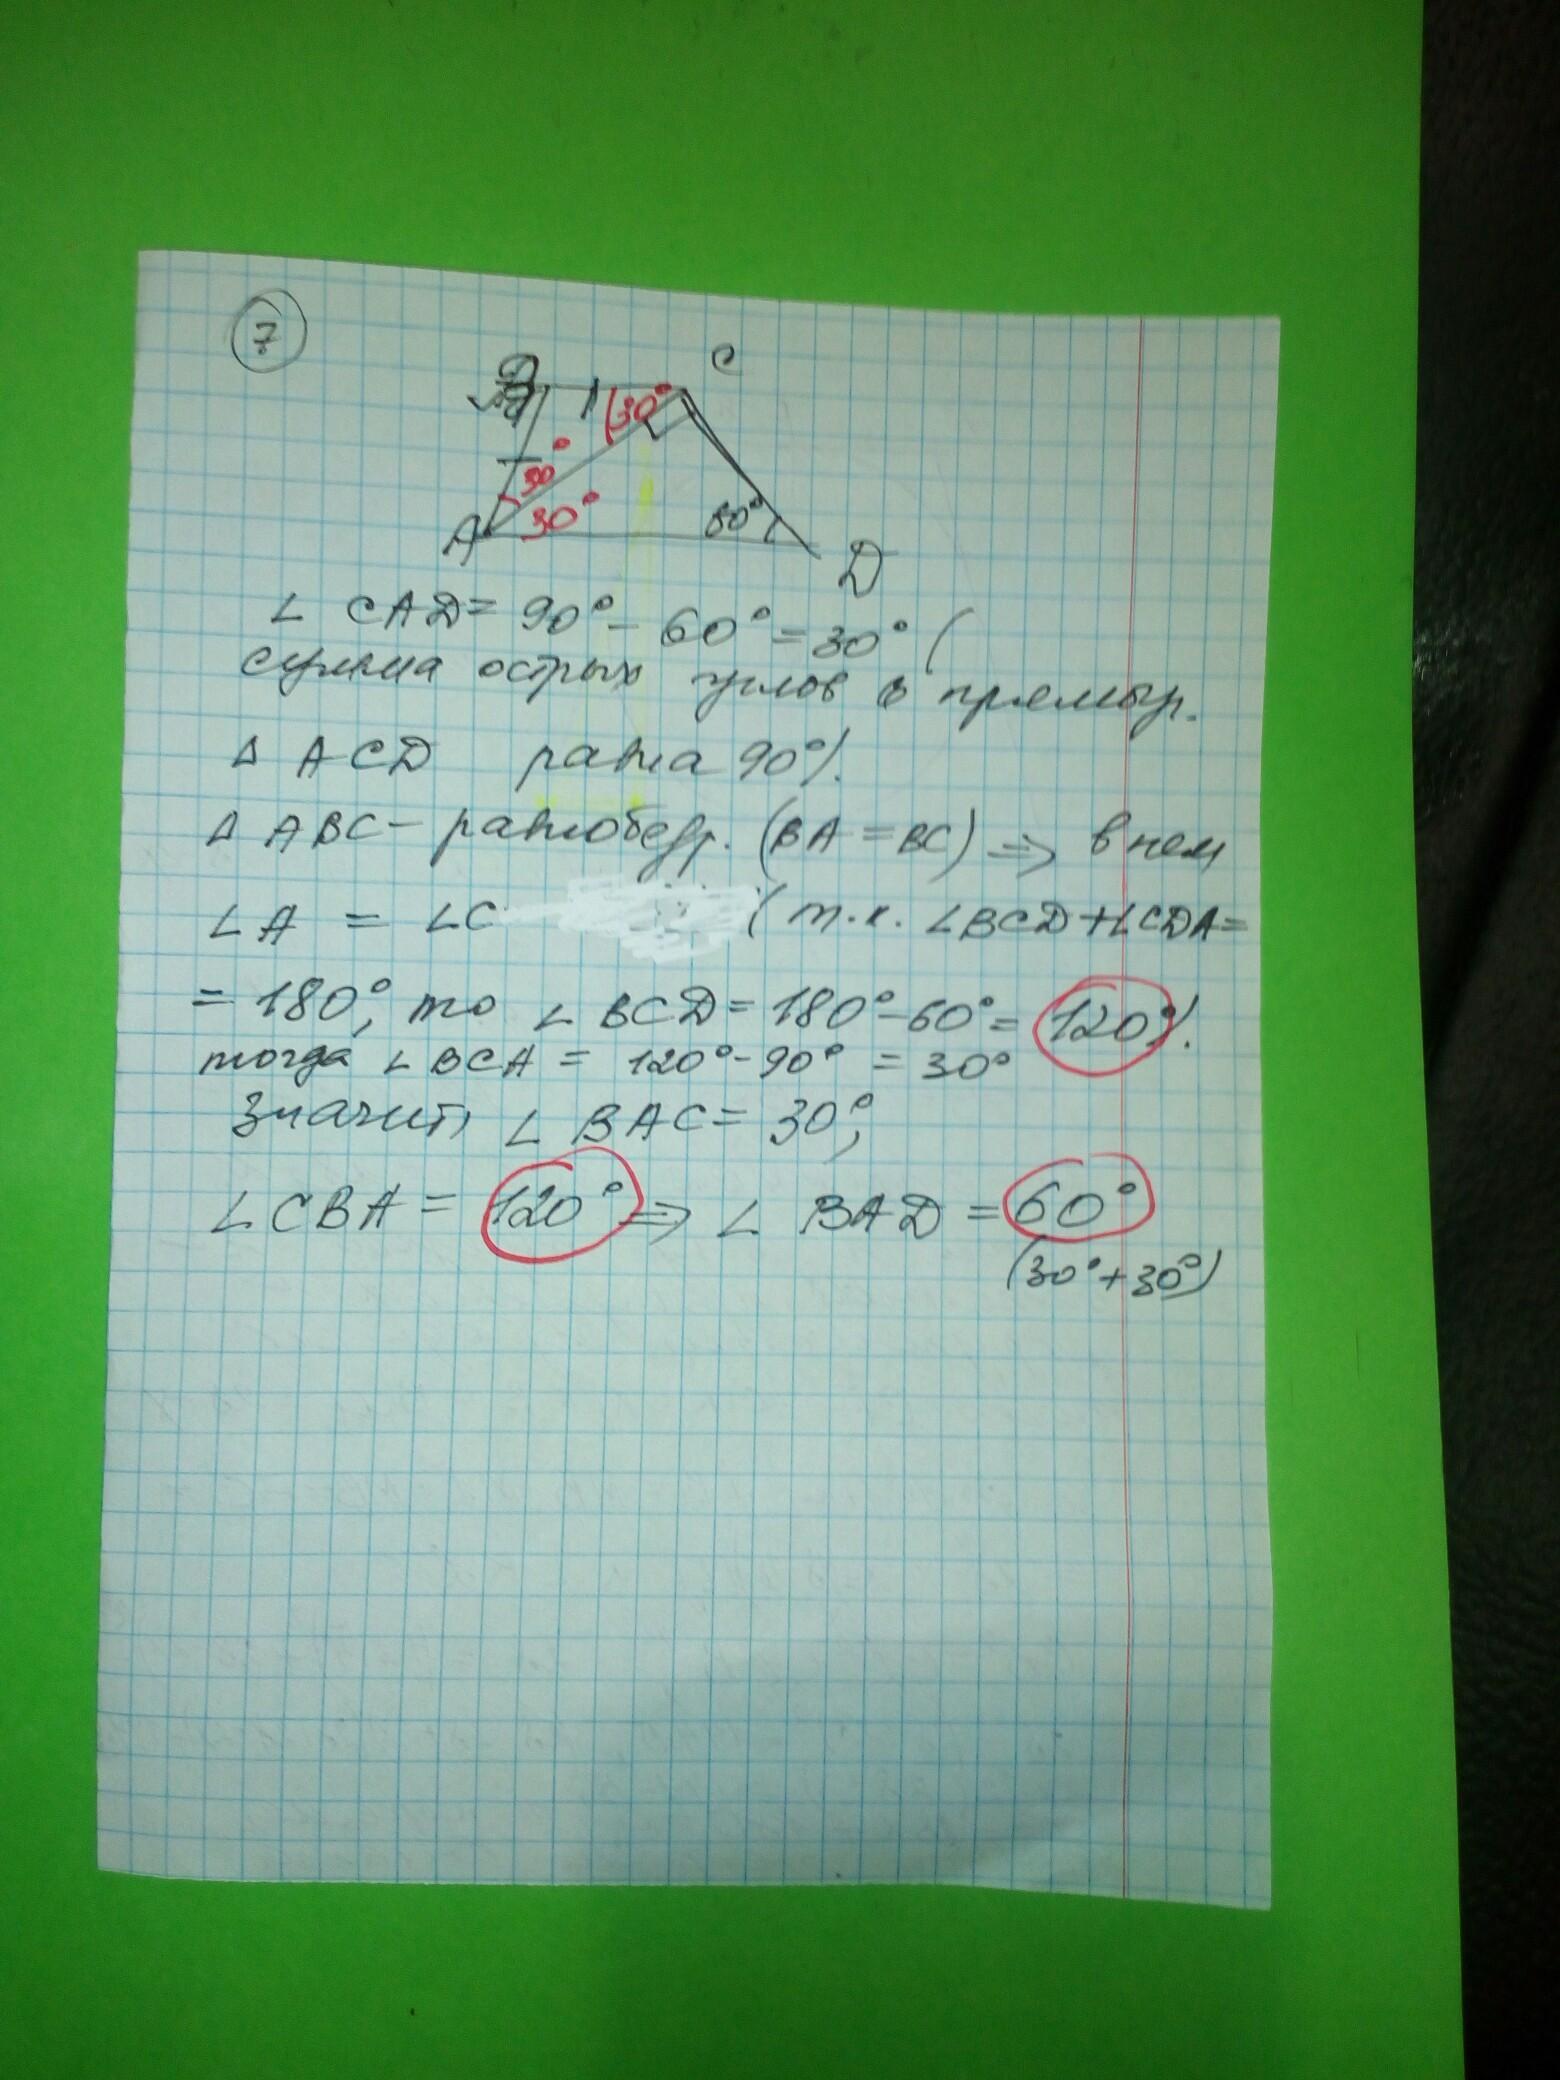 7
B
C
30°
30°
30°
60°
A
D
∠ CAD = 90° - 60° = 30° (
сумма острых углов в прямоуг.
Δ ACD равна 90°).
Δ ABC - равнобедр. (BA = BC) ⇒ в нем
∠A = ∠C (т.к. ∠BCD + ∠CDA =
= 180°, то ∠ BCD = 180° - 60° = 120°).
тогда ∠ BCA = 120° - 90° = 30°
Значит, ∠ BAC = 30°,
∠CBA = 120° ⇒ ∠ BAD = 60°
(30° + 30°)